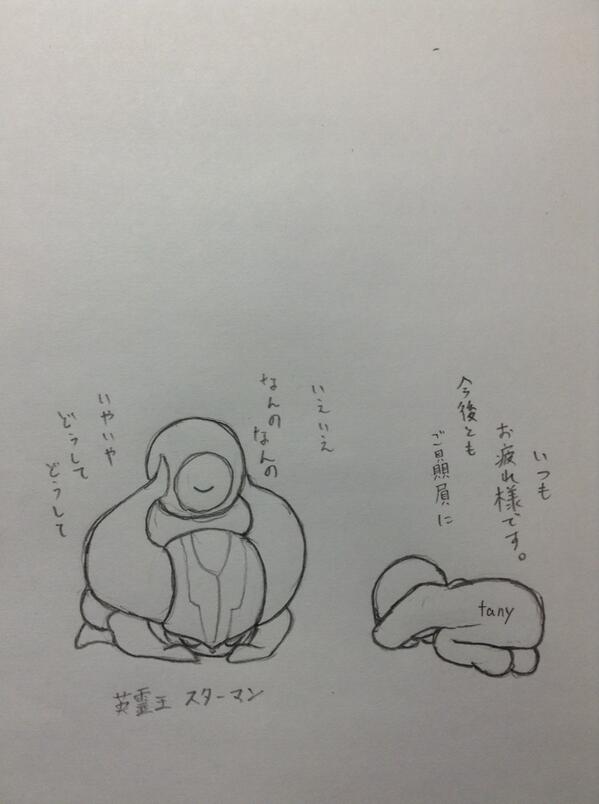 いつも
お疲れ様です。
今後とも
ご贔屓に
いえいえ
なんのなんの
いやいや
どうして
どうして
tany
英霊王 スターマン